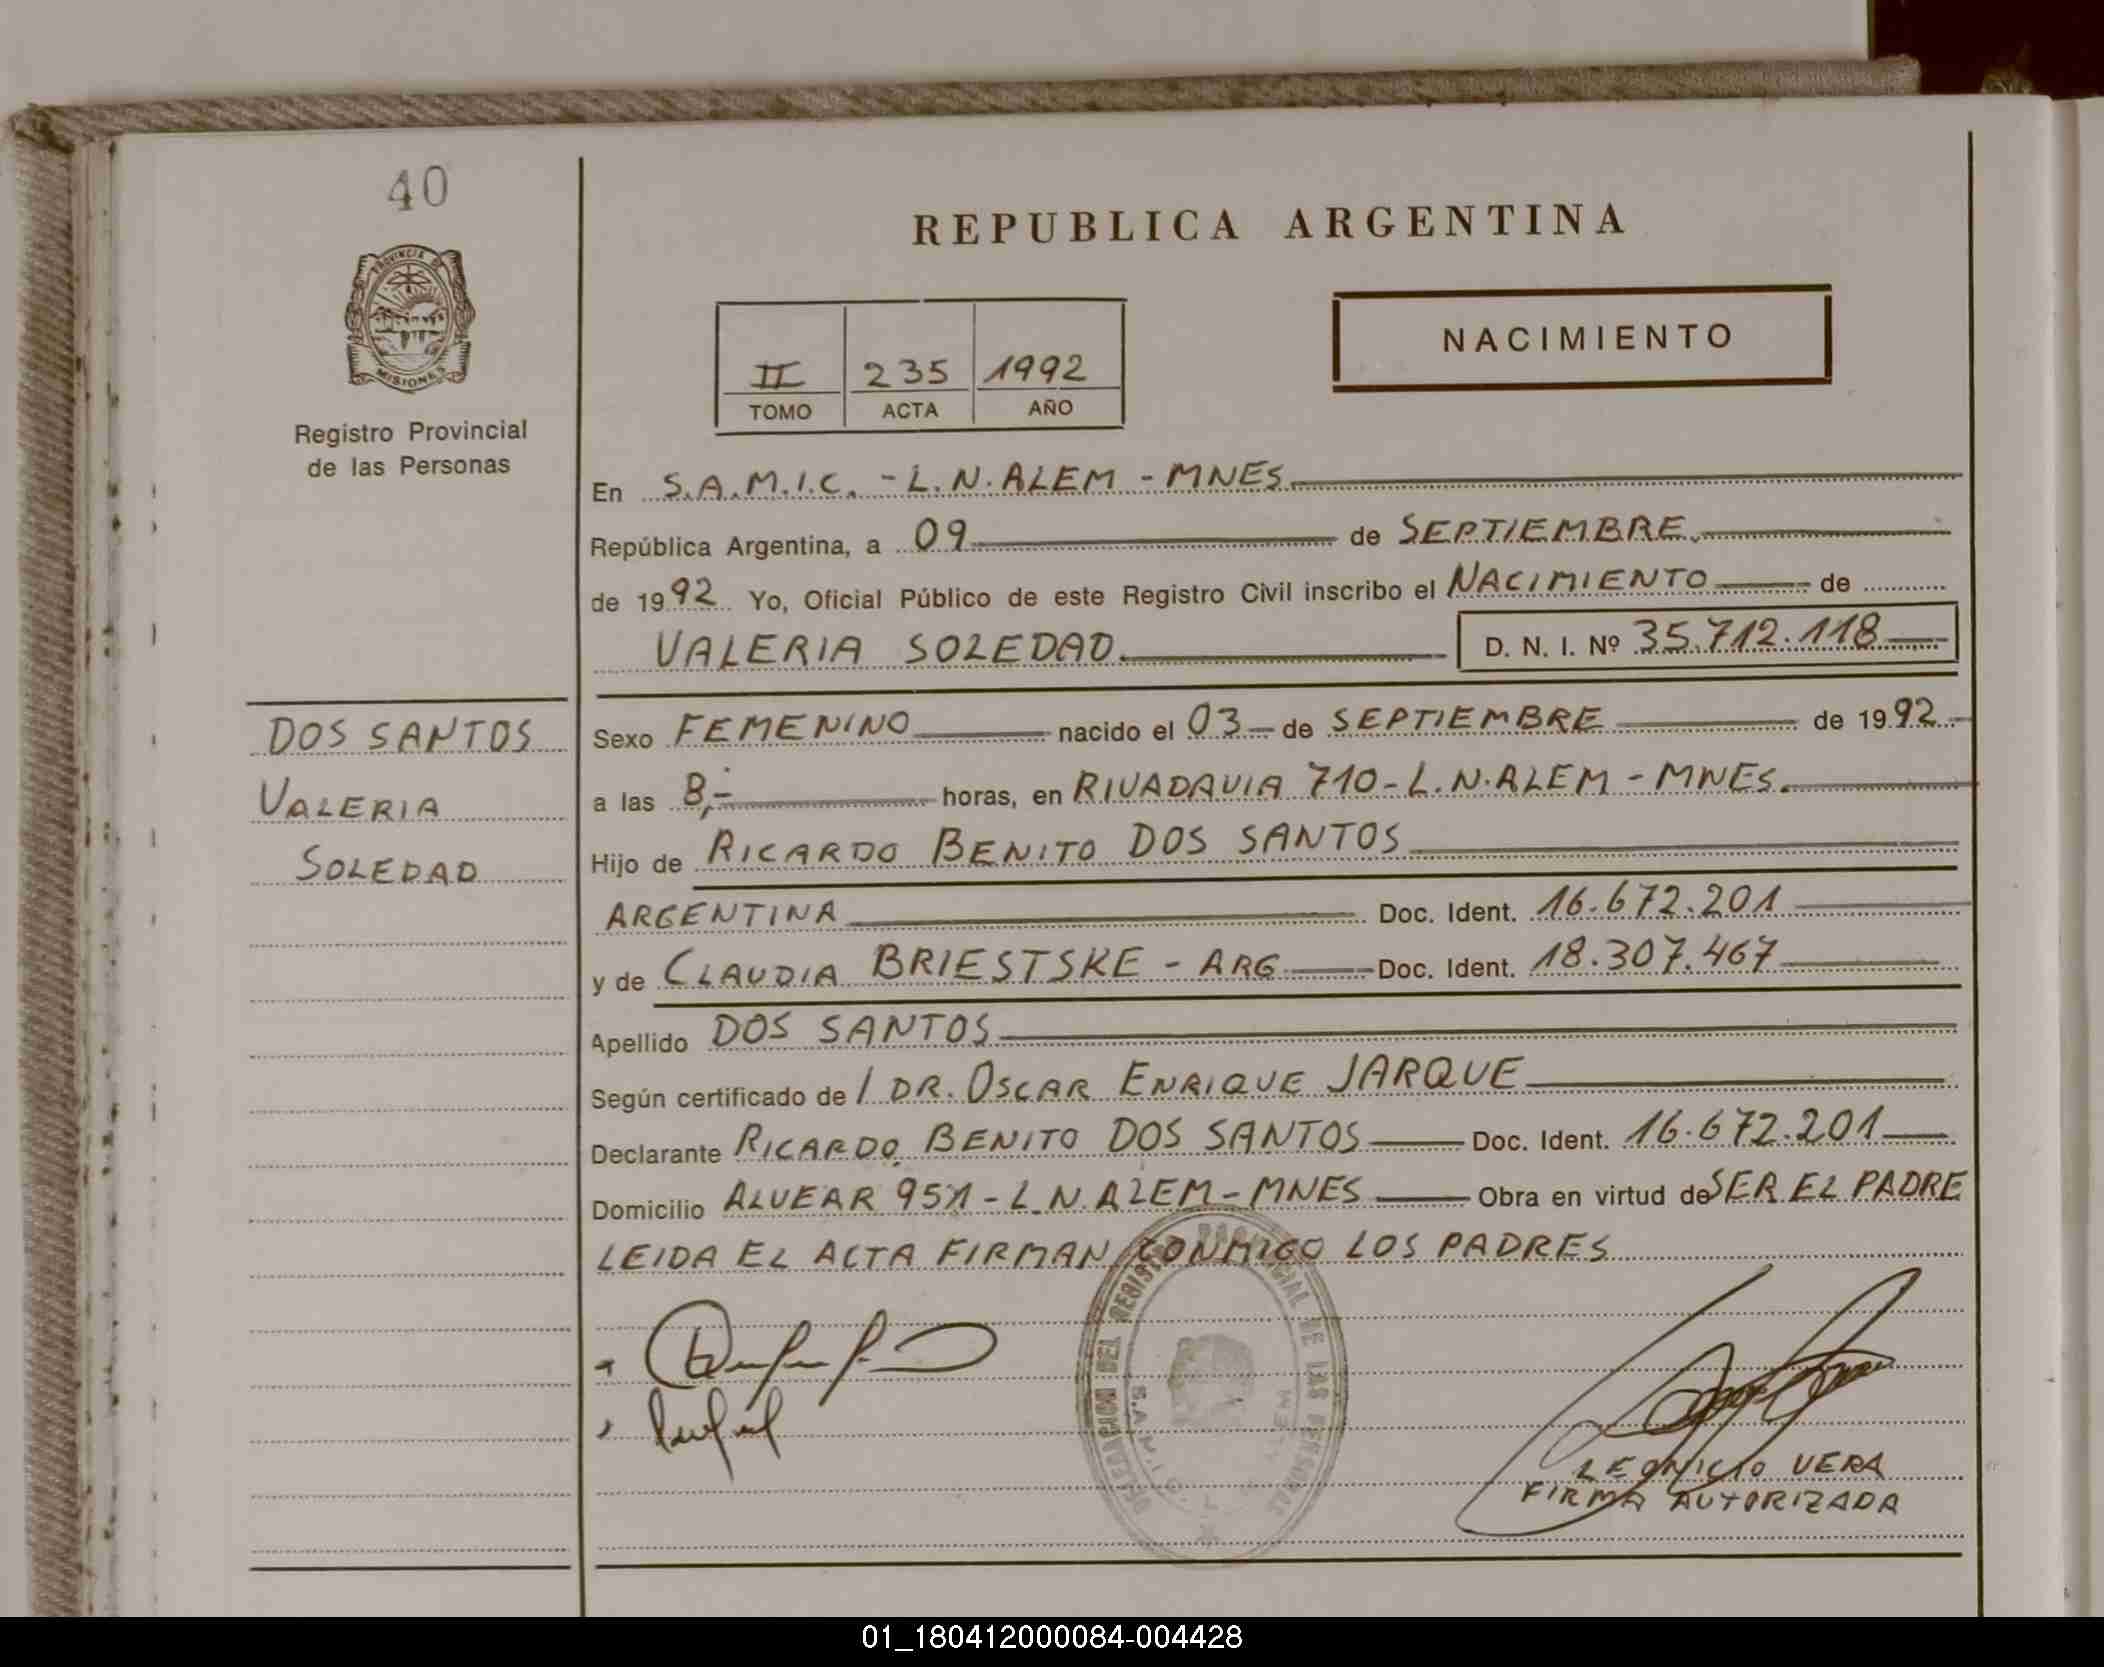 40
PROVINCIA DE
MISIONES
Registro Provincial
de las Personas
DOS SANTOS
VALERIA
SOLEDAD
REPUBLICA ARGENTINA
II 235 1992
TOMO ACTA AÑO
NACIMIENTO
En S.A.M.I.C. - L.N. ALEM - MNES
República Argentina, a 09 de SEPTIEMBRE
de 1992 Yo, Oficial Público de este Registro Civil inscribo el NACIMIENTO de
VALERIA SOLEDAD D. N. I. Nº 35.712.118
Sexo FEMENINO nacido el 03 de SEPTIEMBRE de 1992
a las 8,- horas, en RIVADAVIA 710 - L.N. ALEM - MNES.
Hijo de RICARDO BENITO DOS SANTOS
ARGENTINA Doc. Ident. 16.672.201
y de CLAUDIA BRIESTSKE - ARG Doc. Ident. 18.307.467
Apellido DOS SANTOS
Según certificado de / DR. OSCAR ENRIQUE JARQUE
Declarante RICARDO BENITO DOS SANTOS Doc. Ident. 16.672.201
Domicilio ALVEAR 951 - L.N. ALEM - MNES Obra en virtud de SER EL PADRE
LEIDA EL ACTA FIRMAN CONMIGO LOS PADRES
DELEGACION DEL REGISTRO PROVINCIAL DE LAS PERSONAS
LEONICIO VERA
FIRMA AUTORIZADA
01_180412000084-004428